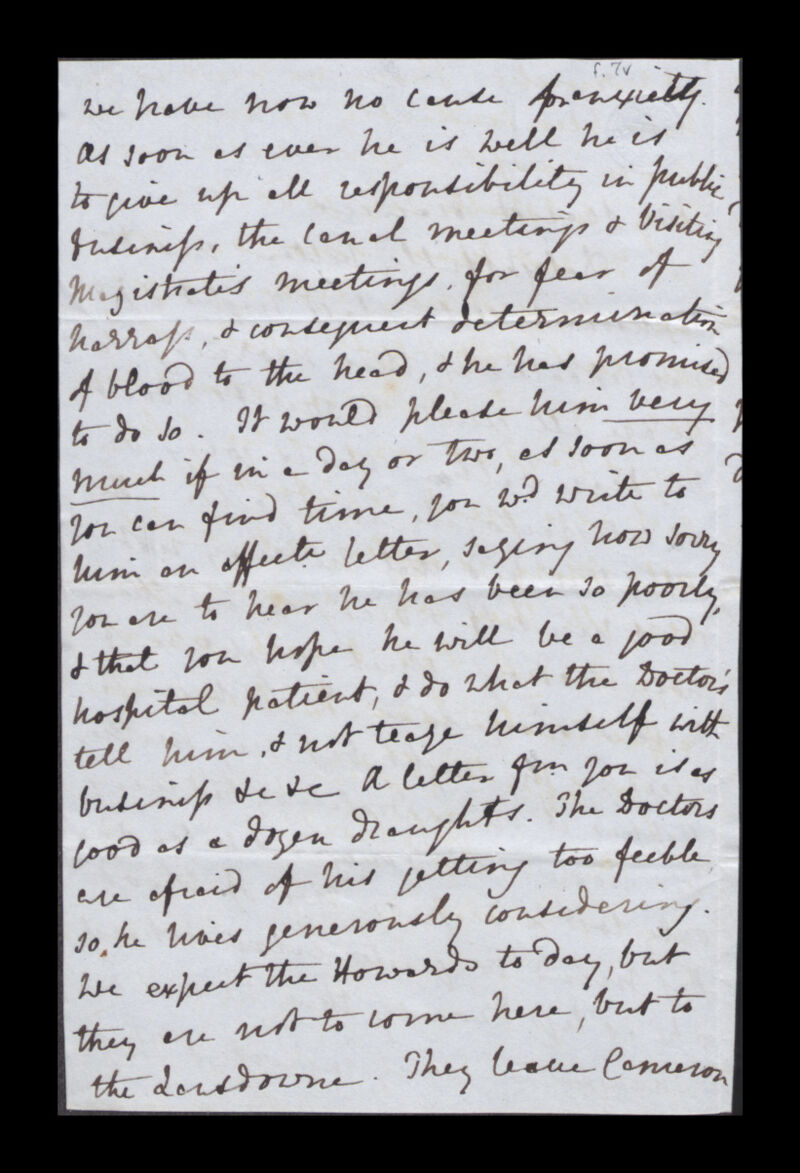 f. 7v
we have now no cause for anxiety.
As soon as ever he is well he is
to give up all responsibility in public
business, the Canal meetings & Visiting
Magistrates meetings, for fear of
harrass, & consequent determination
of blood to the head, & he has promised
to do so. It would please him very
much if in a day or two, as soon as
you can find time, you wd write to
him an affecte letter, saying how sorry
you are to hear he has been so poorly,
& that you hope he will be a good
hospital patient, & do what the Doctors
tell him, & not teaze himself with
business &c &c A letter fm you is as
good as a dozen draughts. The Doctors
are afraid of his getting too feeble
so he lives generously considering.
We expect the Howards to day, but
they are not to come here, but to
the Lansdowne. They leave Cameron